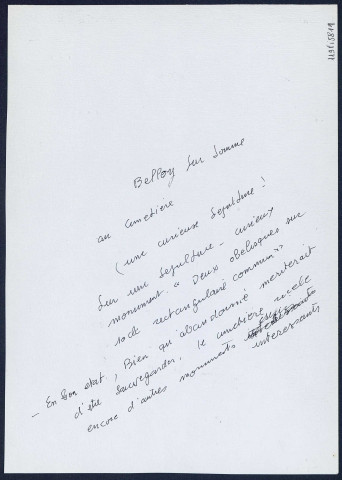 Belloy sur Somme
au cimetière
(une curieuse sépulture !
Sur une sépulture - curieux
monument. " Deux obélisques sur
socle rectangulaire commun "
– En bon état, Bien qu'abandonné mériterait
d'être sauvegarder. le cimetière recele
encore d'autres monuments interessants